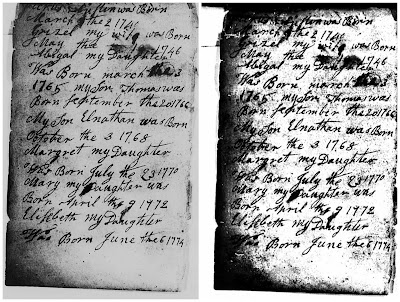 was Born
March the 2 174
Grizel my wife was Born
May the 1746
Abigal my Daughter
Was Born march the 3
1765 my Son Thomas was
Born September the 20 1766
My Son Elnathan was Born
Octob er the 3 1768
Margret my Daughter
Was Born July the 23 1770
Mary my Daughter was
Born April the 9 1772
Elisebeth my Daughter
Was Born June the 6 1774
was Born
March the 2 174
Grizel my wife was Born
May the 1746
Abigal my Daughter
Was Born march the 3
1765 my Son Thomas was
Born September the 20 1766
My Son Elnathan was Born
October the 3 1768
Margret my Daughter
Was Born July the 23 1770
Mary my Daughter was
Born April the 9 1772
Elisebeth my Daughter
Was Born June the 6 1774